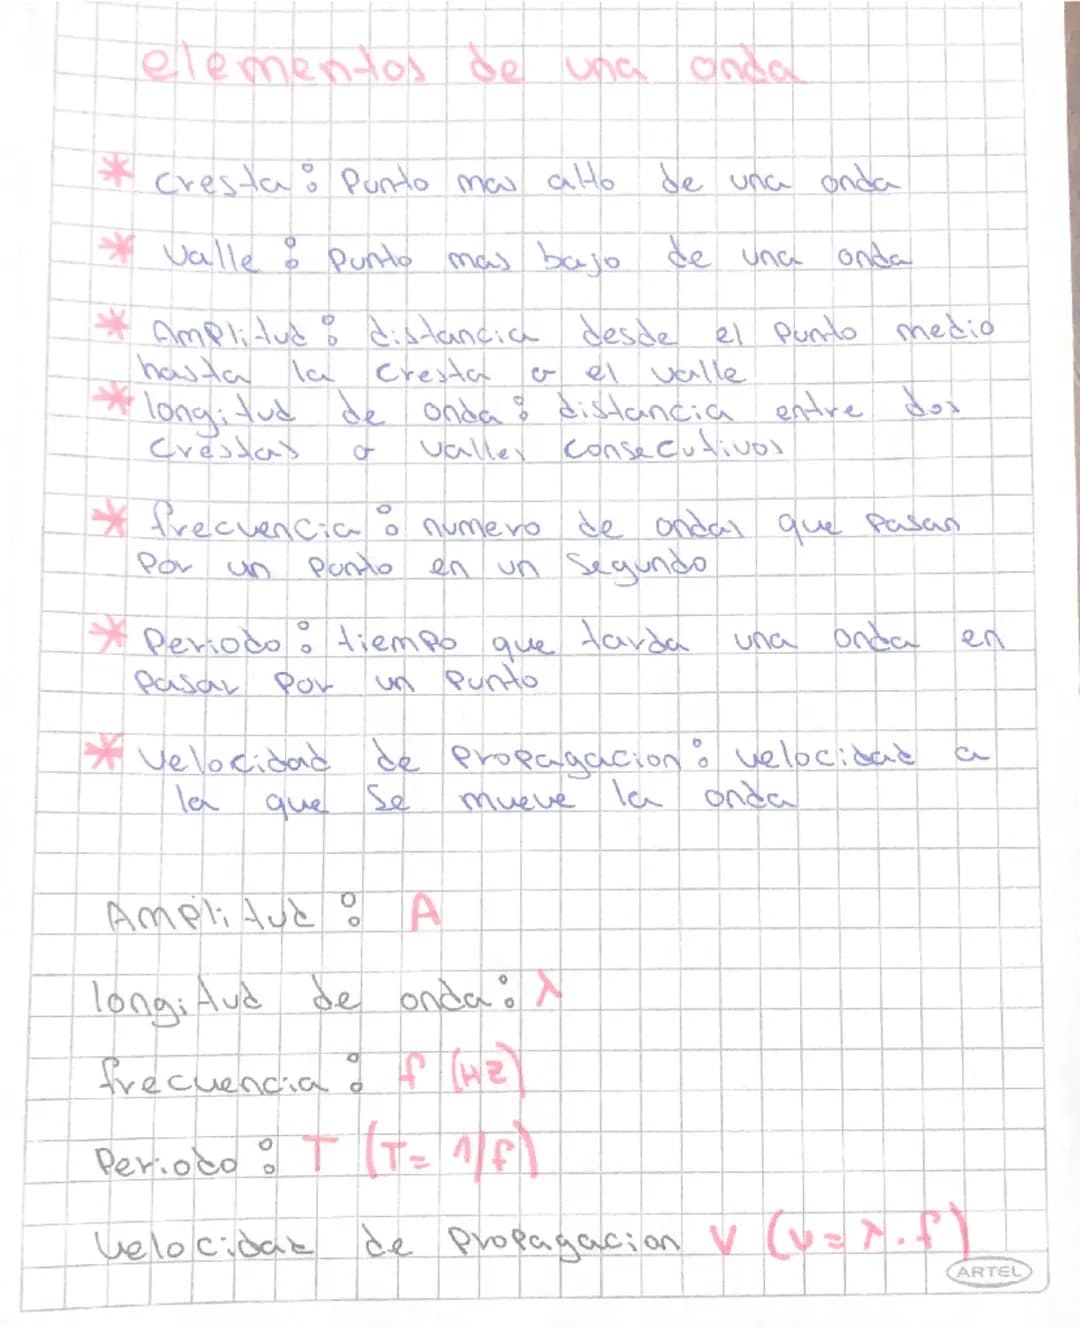 elementos de una onda
* cresta: Punto mas alto de una onda
* Valle: punto mas bajo de una onda
* Amplitud: distancia desde el punto medio
hasta la cresta o el valle
* longitud de onda: distancia entre dos
crestas o valles consecutivos
* frecuencia: numero de ondas que pasan
por un punto en un segundo
* Periodo: tiempo que tarda una onda en
pasar por un punto
* Velocidad de propagacion: velocidad a
la que se mueve la onda
Amplitud: A
longitud de onda: λ
frecuencia: f (Hz)
Periodo: T (T= 1/f)
Velocidad de propagacion V (v=λ.f)
ARTEL